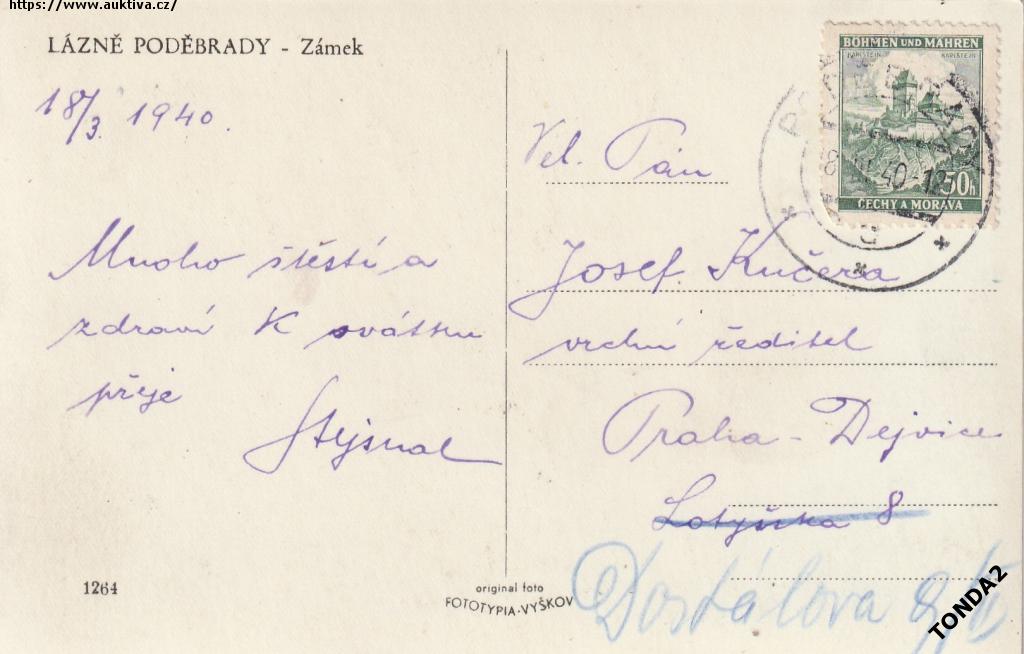 https://www.auktiva.cz/
LÁZNĚ PODĚBRADY - Zámek
18/3. 1940.
Mnoho štěstí a
zdraví K svátku
přeje
Stejskal
BÖHMEN UND MÄHREN
KARLSTEIN KARLŠTEJN
50h
ČECHY A MORAVA
Vel. Pán
Josef Kučera
vrchní ředitel
Praha - Dejvice
Lotyšská 8
Dostálova
1264
original foto
FOTOTYPIA-VYŠKOV
TONDA2